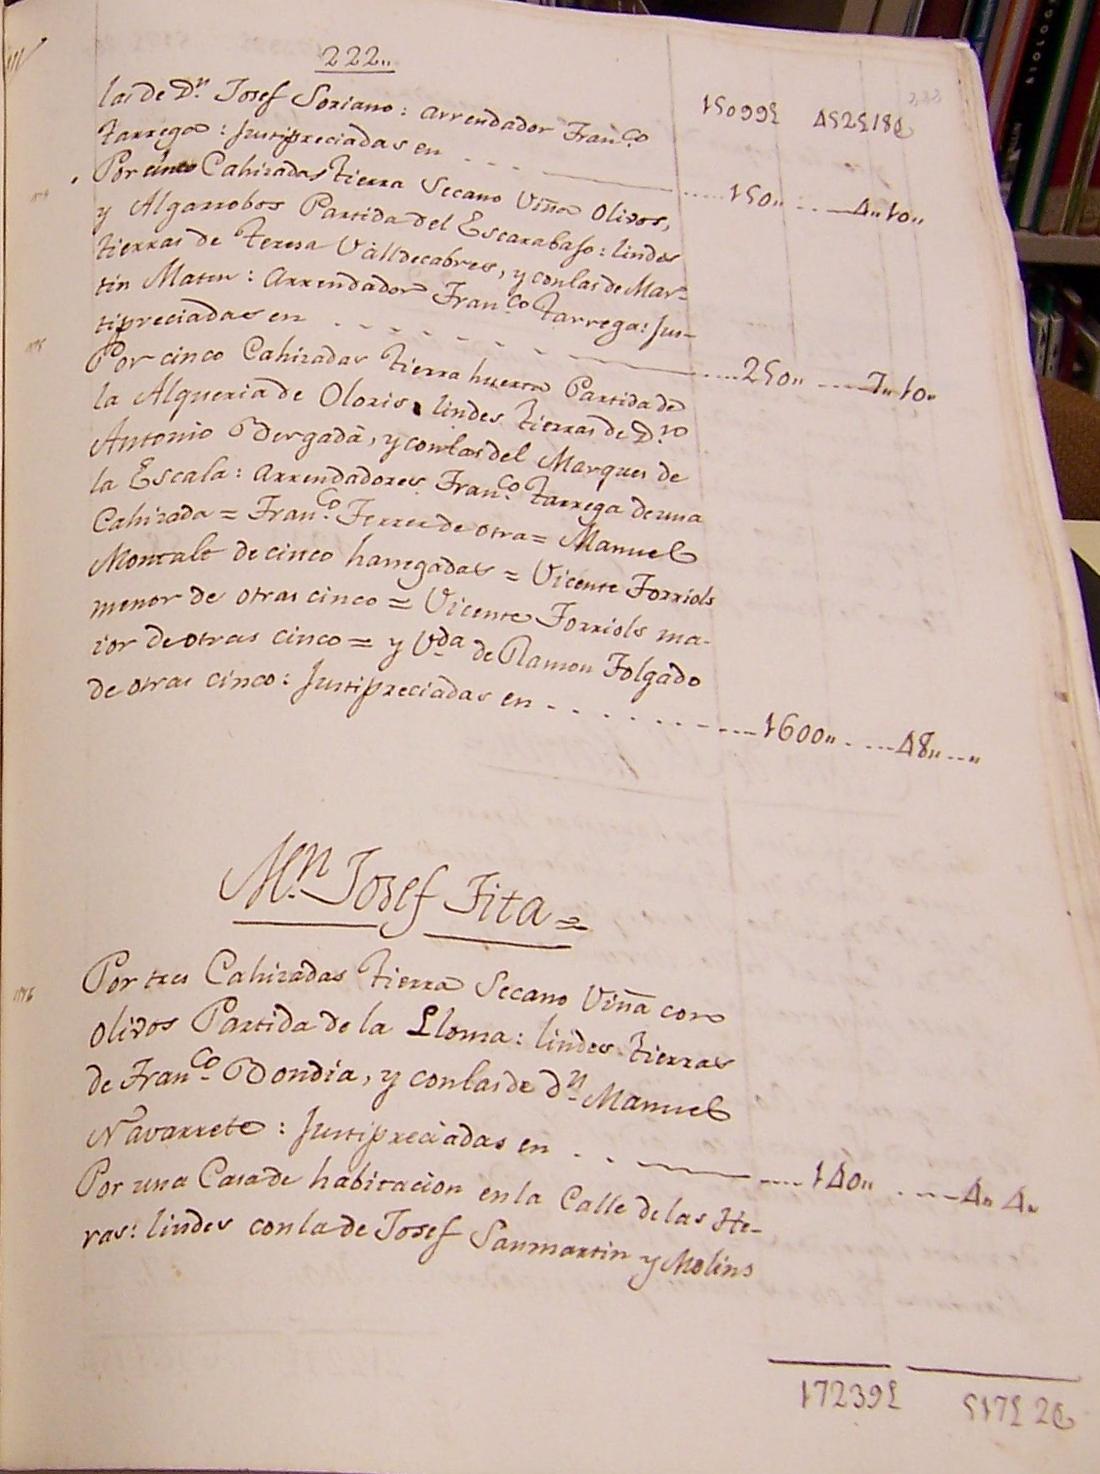 222.,
las de Dn. Josef Soriano: arrendador Franco.
Tarrega: Justipreciadas en ..... 150,, ..... 4,,10,,
Por cinco Cahizadas tierra Secano Viña Olivos,
y Algarrobos Partida del Escarabaso: lindes
tierras de Teresa Valldecabres, y con las de Mar-
tin Mateu: arrendador Franco. Tarrega: Jus-
tipreciadas en ..... 250,, ..... 7,,10,,
Por cinco Cahizadas tierra huerta Partida de
la Alqueria de Oloris. lindes tierras de Dn.
Antonio Bergadà, y con las del Marques de
la Escala: arrendadores Franco. Tarrega de una
Cahizada = Franco. Ferrer de otra = Manuel
Montalt de cinco hanegadas = Vicente Forriols
menor de otras cinco = Vicente Forriols ma-
ior de otras cinco = y Vda de Ramon Folgado
de otras cinco: Justipreciadas en ..... 1600,, ..... 48,, ....,,
Mn. Josef Fita =
Por tres Cahizadas tierra Secano Viña con
Olivos Partida de la Lloma: lindes tierras
de Franco. Bondia, y con las de Dn. Manuel
Navarrete: Justipreciadas en ..... 140,, ..... 4,, 4,,
Por una Casa de habitacion en la Calle de las He-
ras: lindes con la de Josef Sanmartin y Molins